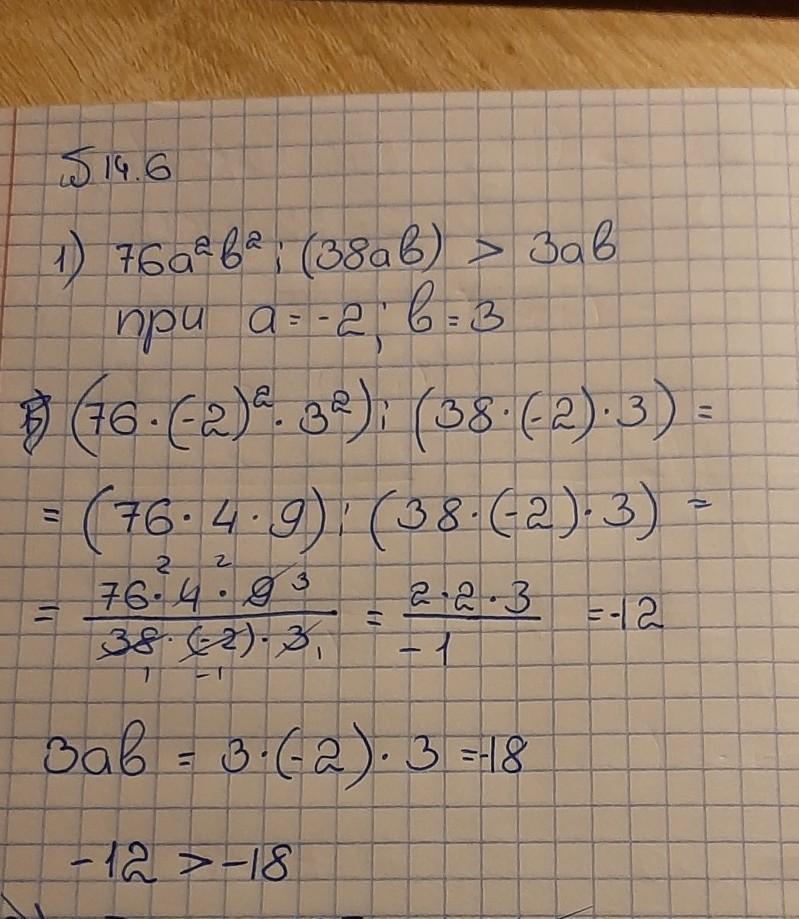 § 14.6
1) 76a²b² : (38ab) > 3ab
при a = -2; b = 3
(76·(-2)²·3²) : (38·(-2)·3) =
= (76·4·9) : (38·(-2)·3) =
= 76·4·9 / 38·(-2)·3 = 2·2·3 / -1 = -12
3ab = 3·(-2)·3 = -18
-12 > -18